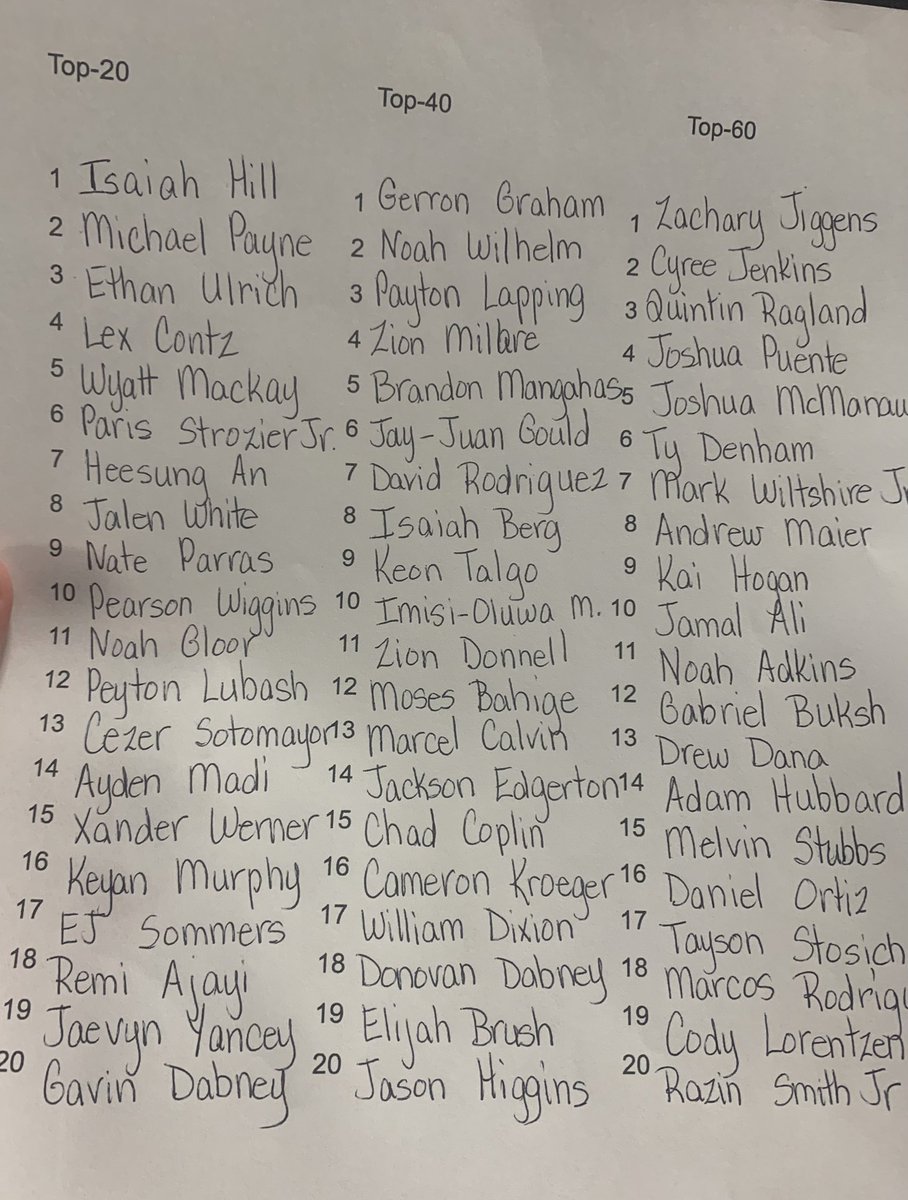 Top-20
1 Isaiah Hill
2 Michael Payne
3 Ethan Ulrich
4 Lex Contz
5 Wyatt Mackay
6 Paris Strozier Jr.
7 Heesung An
8 Jalen White
9 Nate Parras
10 Pearson Wiggins
11 Noah Gloor
12 Peyton Lubash
13 Cezer Sotomayor
14 Ayden Madi
15 Xander Werner
16 Keyan Murphy
17 EJ Sommers
18 Remi Ajayi
19 Jaevyn Yancey
20 Gavin Dabney
Top-40
1 Gerron Graham
2 Noah Wilhelm
3 Payton Lapping
4 Zion Milare
5 Brandon Mangahas
6 Jay-Juan Gould
7 David Rodriguez
8 Isaiah Berg
9 Keon Talgo
10 Imisi-Oluwa M.
11 Zion Donnell
12 Moses Bahige
13 Marcel Calvin
14 Jackson Edgerton
15 Chad Coplin
16 Cameron Kroeger
17 William Dixion
18 Donovan Dabney
19 Elijah Brush
20 Jason Higgins
Top-60
1 Zachary Jiggens
2 Cyree Jenkins
3 Quintin Ragland
4 Joshua Puente
5 Joshua McManau
6 Ty Denham
7 Mark Wiltshire Jr
8 Andrew Maier
9 Kai Hogan
10 Jamal Ali
11 Noah Adkins
12 Gabriel Buksh
13 Drew Dana
14 Adam Hubbard
15 Melvin Stubbs
16 Daniel Ortiz
17 Tayson Stosich
18 Marcos Rodrigu
19 Cody Lorentzen
20 Razin Smith Jr